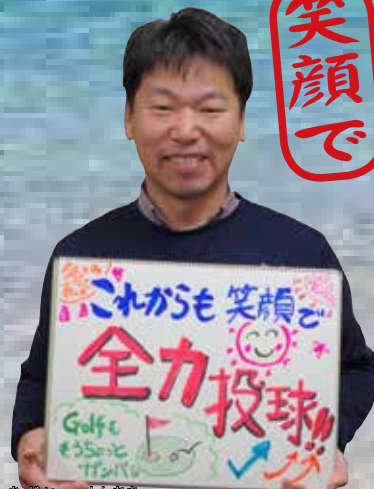 笑顔で
これからも 笑顔で
全力投球!!
Golfも
もうちょっと
ガンバル